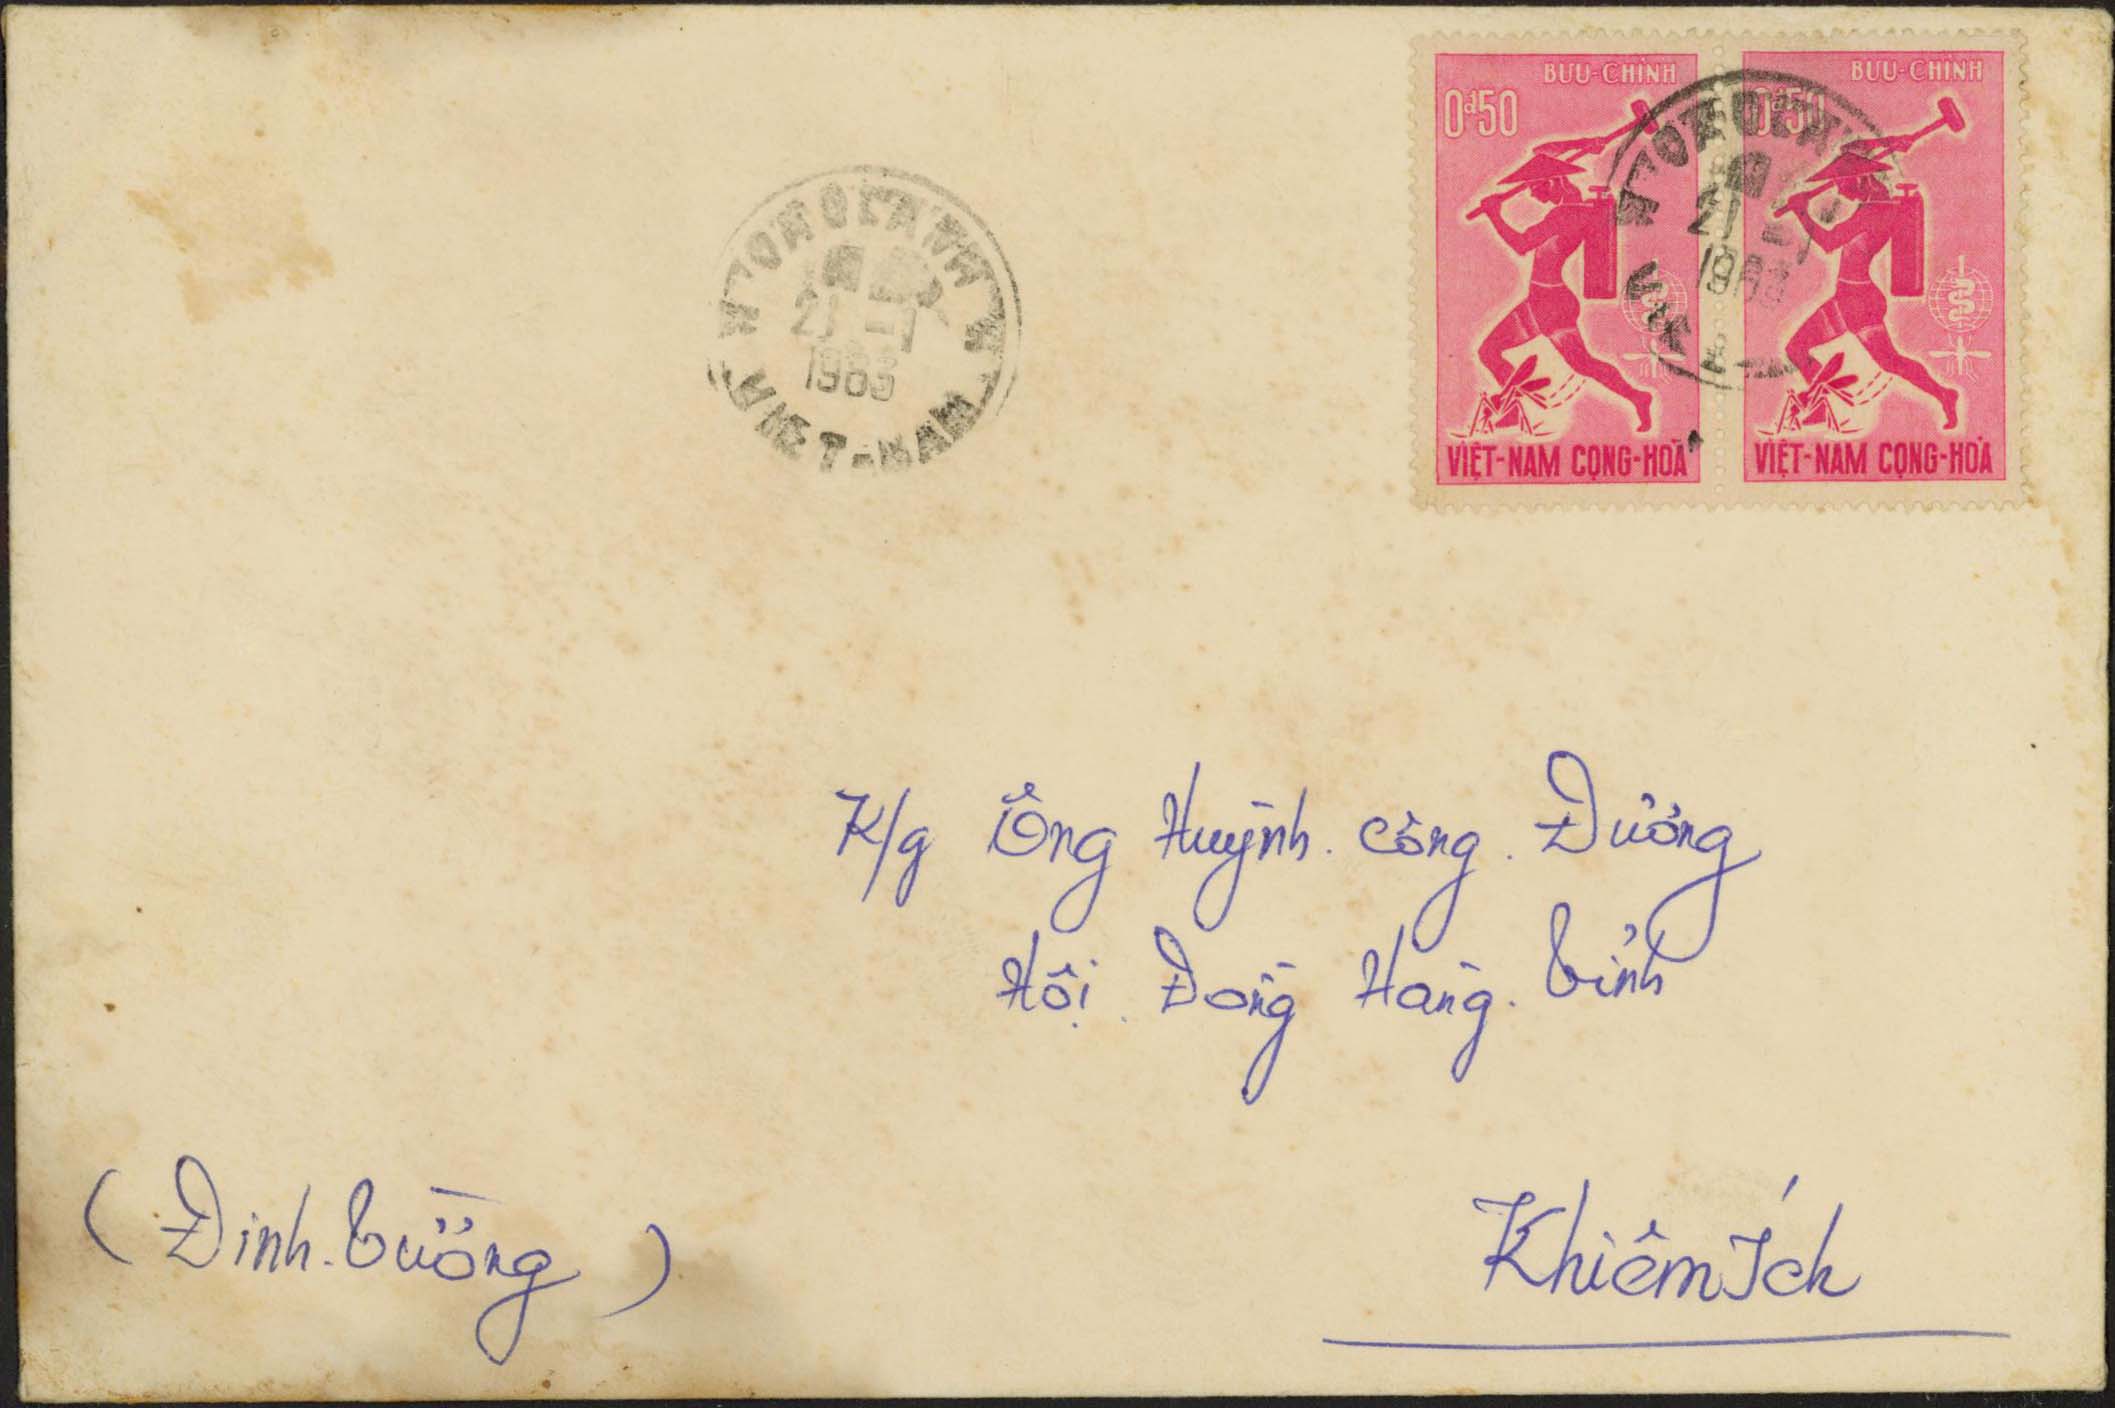 BƯU-CHÍNH
0đ50
VIỆT-NAM CỘNG-HÒA
BƯU-CHÍNH
0đ50
VIỆT-NAM CỘNG-HÒA
21 -1
1963
VIET-NAM
21 -1
K/g Ông Huỳnh. Công. Đường
Hội. Đồng Hàng. Tỉnh
Khiêm Ích
(Định. Tường)